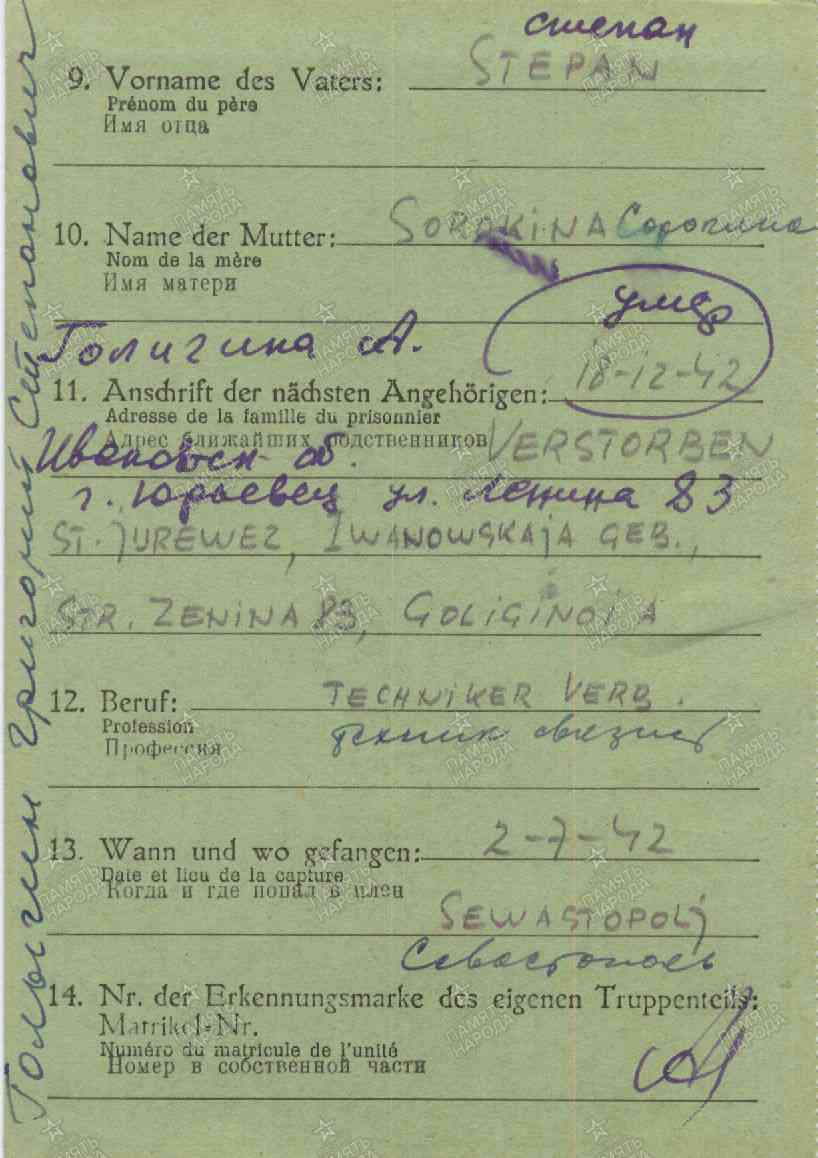 Голыгин Григорий Степанович
степан
9. Vorname des Vaters: STEPAN
Prénom du père
Имя отца
10. Name der Mutter: SORAKINA Сорокина
Nom de la mère
Имя матери
умер
Голигина А.
18-12-42
11. Anschrift der nächsten Angehörigen:
Adresse de la famille du prisonnier
Адрес ближайших родственников VERSTORBEN
Ивановск об.
г. Юрьевец ул. Ленина 83
ST. JUREWEZ, IWANOWSKAJA GEB.,
STR. ZENINA 83, GOLIGINOJ A
12. Beruf: TECHNIKER VERB.
Profession
Профессия
техник связист
13. Wann und wo gefangen: 2-7-42
Date et lieu de la capture
Когда и где попал в плен
SEWASTOPOLJ
Севастополь
14. Nr. der Erkennungsmarke des eigenen Truppenteils:
Matrikel-Nr.
Numéro du matricule de l'unité
Номер в собственной части
ПАМЯТЬ НАРОДА